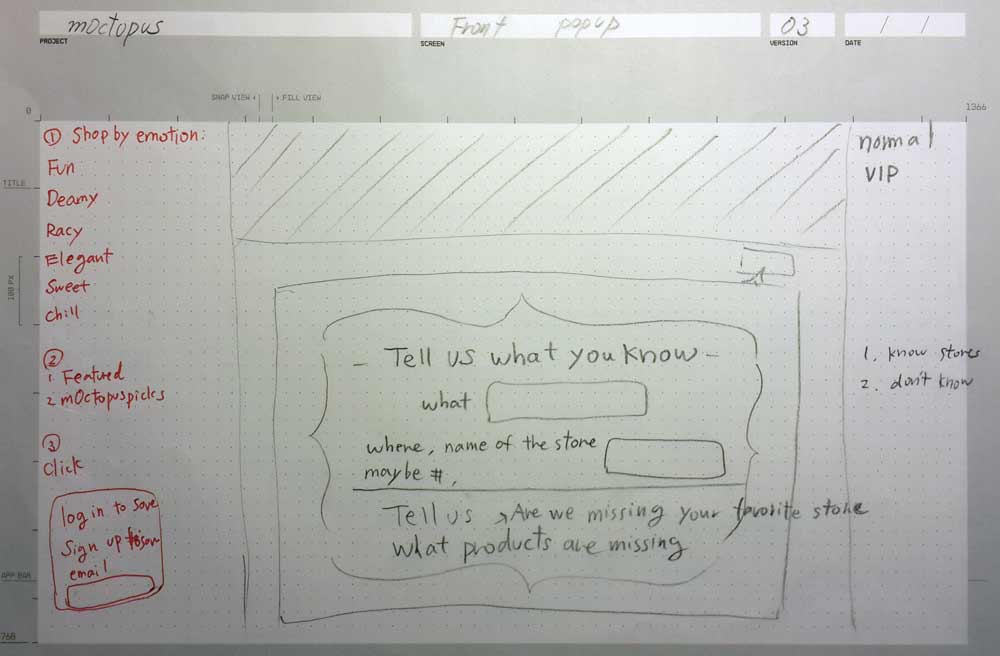 mOctopus
Front popup
03
/ /
PROJECT
SCREEN
VERSION
DATE
SNAP VIEW
FILL VIEW
0
1366
TITLE
100 PX
APP BAR
768
① Shop by emotion:
Fun
Deamy
Racy
Elegant
Sweet
chill
②
1. Featured
2 mOctopuspicks
③
Click
log in to save
Sign up to save
email
- Tell us what you know -
what
where, name of the store
maybe #,
Tell us → Are we missing your favorite store
what products are missing
normal
VIP
1. know stores
2. don't know